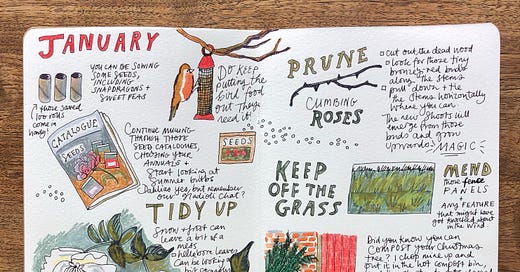 JANUARY
YOU CAN BE SOWING
SOME SEEDS,
INCLUDING
SNAPDRAGONS +
SWEET PEAS
↑ those saved
loo rolls
come in
handy!
DO KEEP
putting the
bird food
out They
need it!
PRUNE
CLIMBING
ROSES
□ cut out the dead wood
□ look for those tiny
bronzey red buds
along the stems
pull down + tie
the stems horizontally
where you can.
The new shoots will
emerge from those
buds and grow
upwards MAGIC
CATALOGUE
SEEDS
CONTINUE MULLING
THROUGH THOSE
SEED CATALOGUES,
CHOOSING YOUR
ANNUALS +
Start looking at
Summer bulbs
Dahlias yes, but remember
our Gladioli chat?
SEEDS
KEEP
OFF THE
GRASS
MEND
those fence
PANELS
ANY FEATURE
that might have
got knocked about
in the wind
TIDY UP
Snow + frost can
leave a bit of a
mess
hellebore leaves
Can be looking a
bit
Did you know you can
COMPOST YOUR Christmas
tree? I chop mine up and
put it in the hot compost bin,